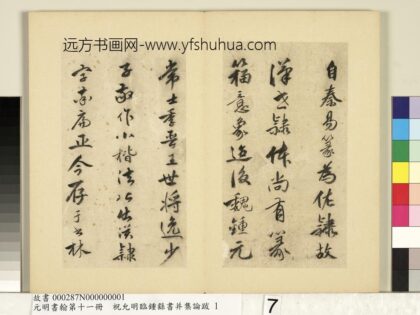 远方书画网-www.yfshuhua.com
自秦易篆為佐隸故
漢世隸体尚有篆
籀意象迨後魏鍾元
常士季晋王世将逸少
子敬作小楷法以出漢隸
字亦扁正今存于書林
故書 000287N000000001
元明書翰第十一冊 祝允明臨鍾繇書并集論跋 1
7